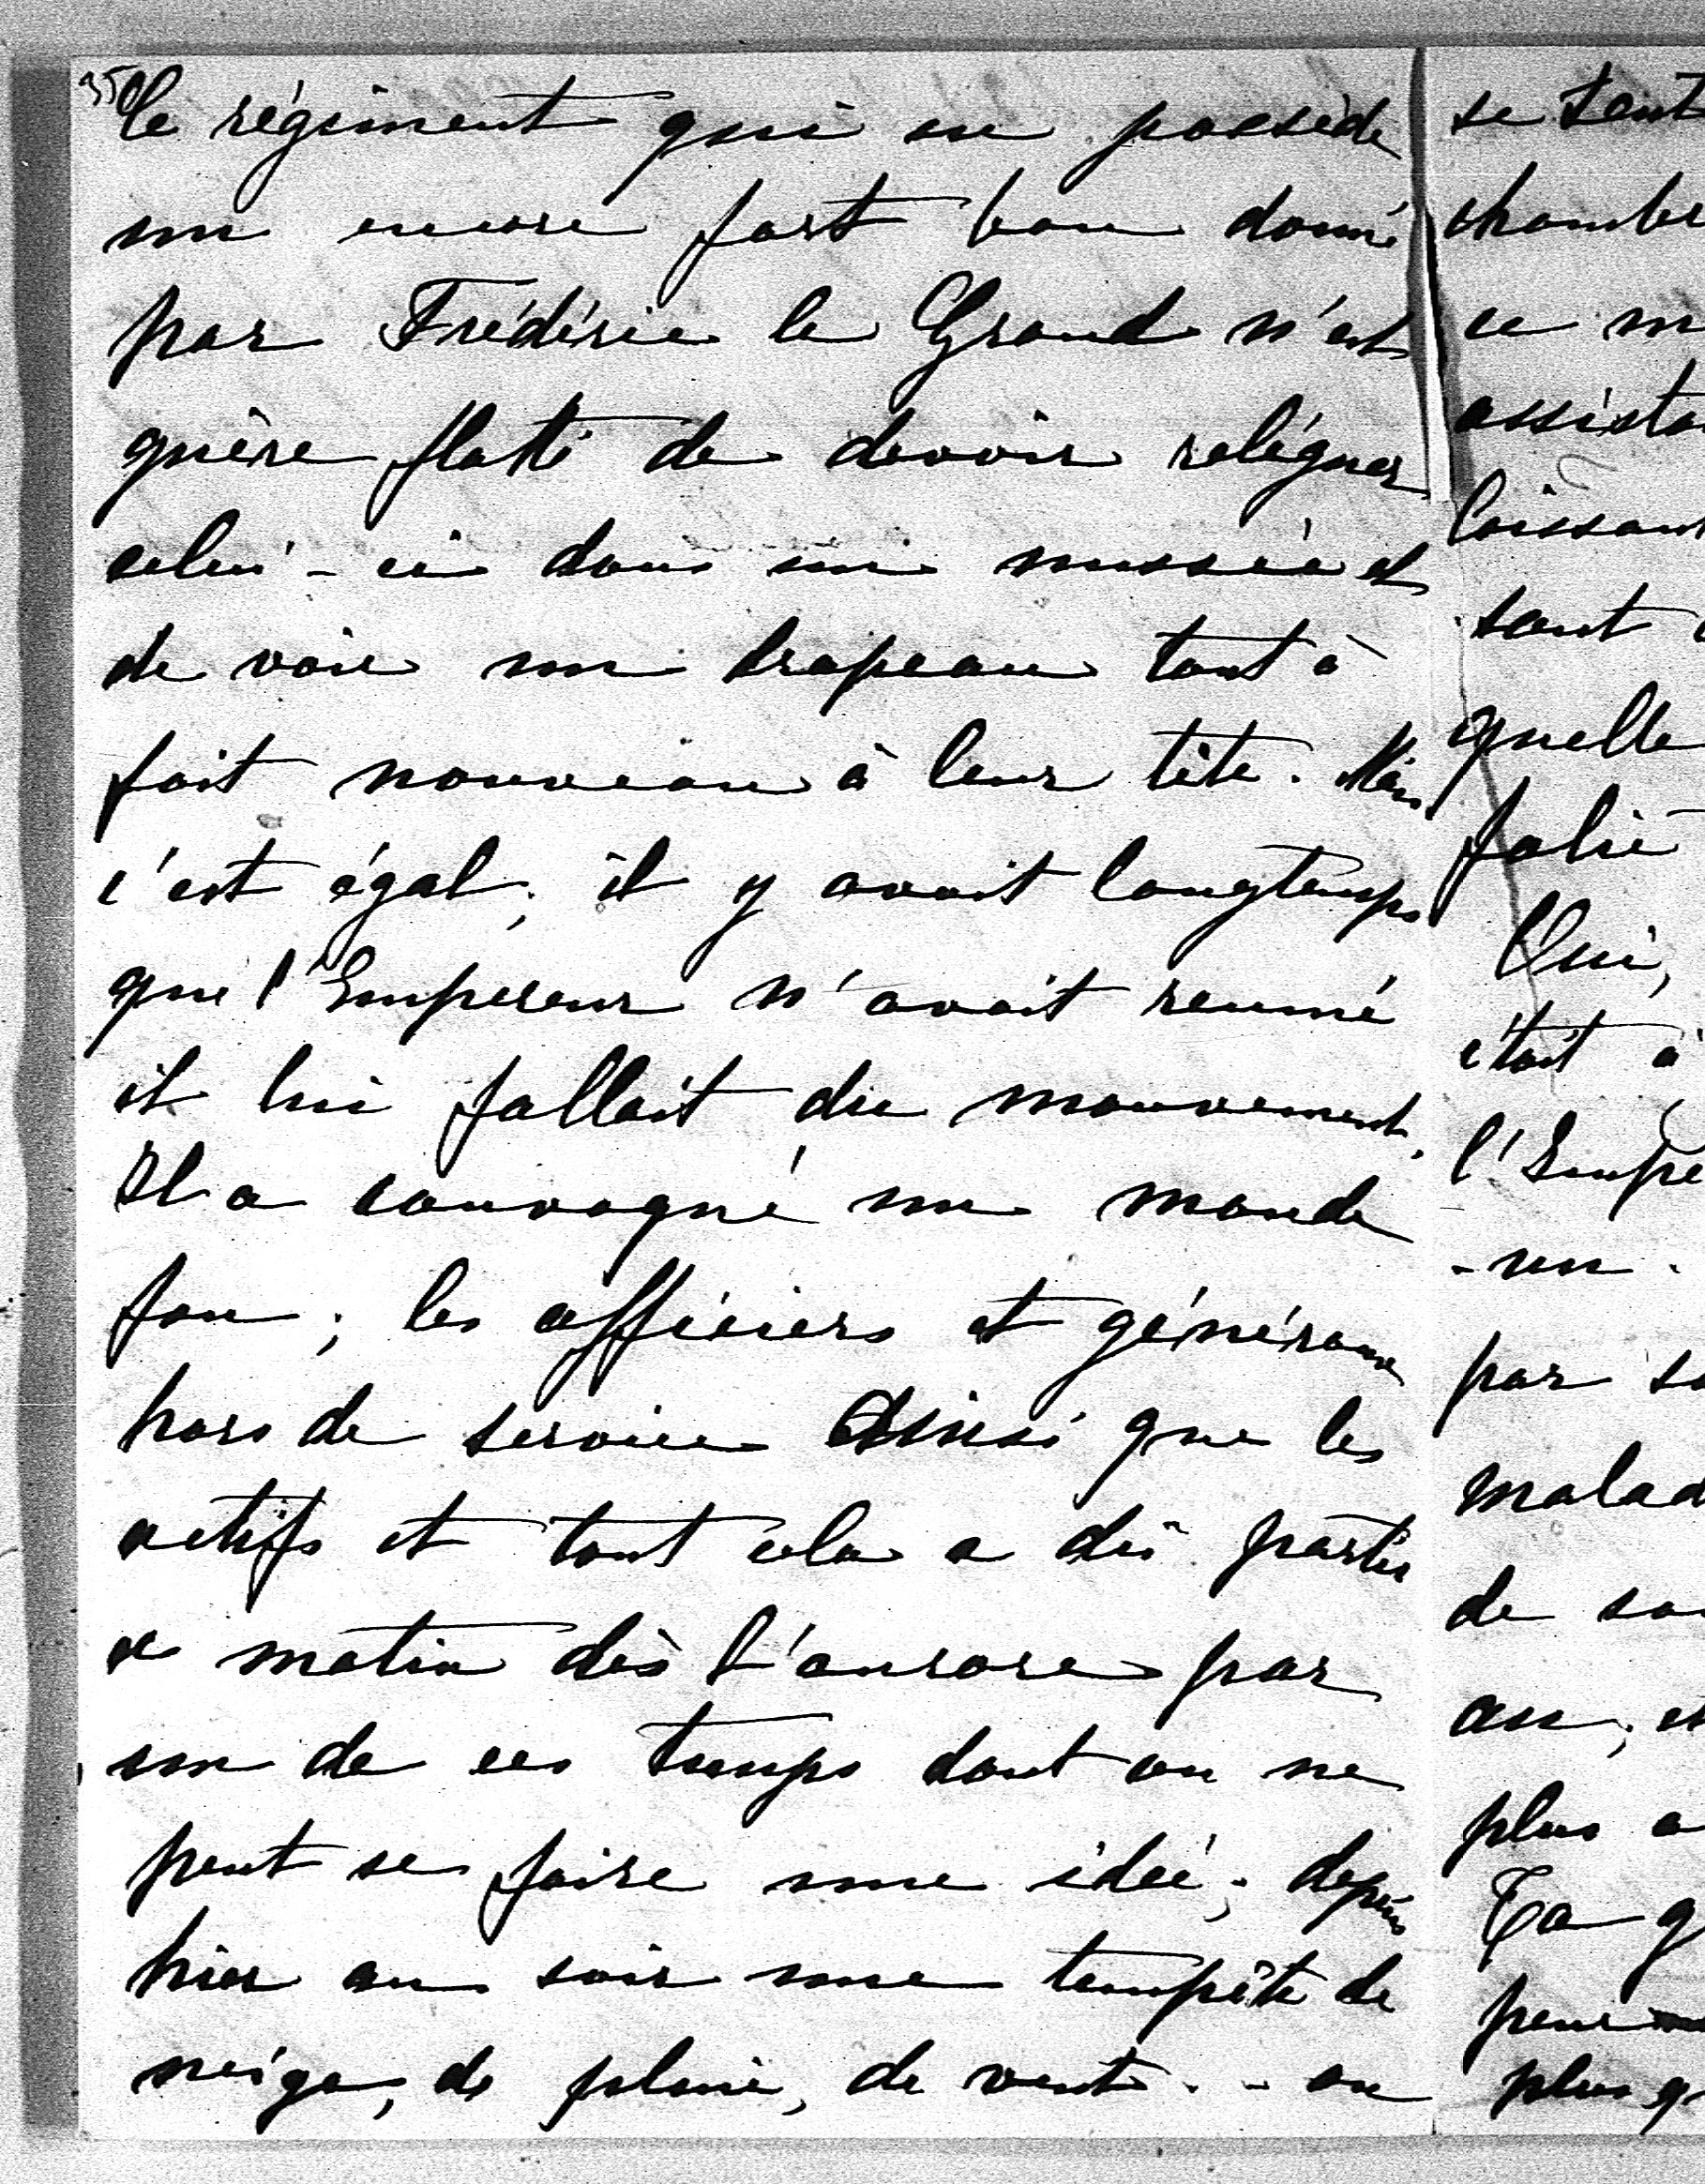 350
le régiment qui en possède
un encore fort bon donné
par Frédéric le Grand n'est
guère flatté de devoir reléguer
celui-ci dans un musée et
de voir un drapeau tout à
fait nouveau à leur tête. Mais
c'est égal; il y avait longtemps
que l'Empereur n'avait remué
il lui fallait du mouvement.
Il a convoqué un monde
fou; les officiers et généraux
hors de service ainsi que les
actifs et tout cela a dû partir
ce matin dès l'aurore par
un de ces temps dont on ne
peut se faire une idée; depuis
hier au soir une tempête de
neige, de pluie, de vent.. on
se sent
chambre
ce m
assista
laissant
sont
quelle
folie
Oui,
était à
l'Empe
-un.
par sa
malad
de sa
an; et
plus a
Ça q
peur
plus q